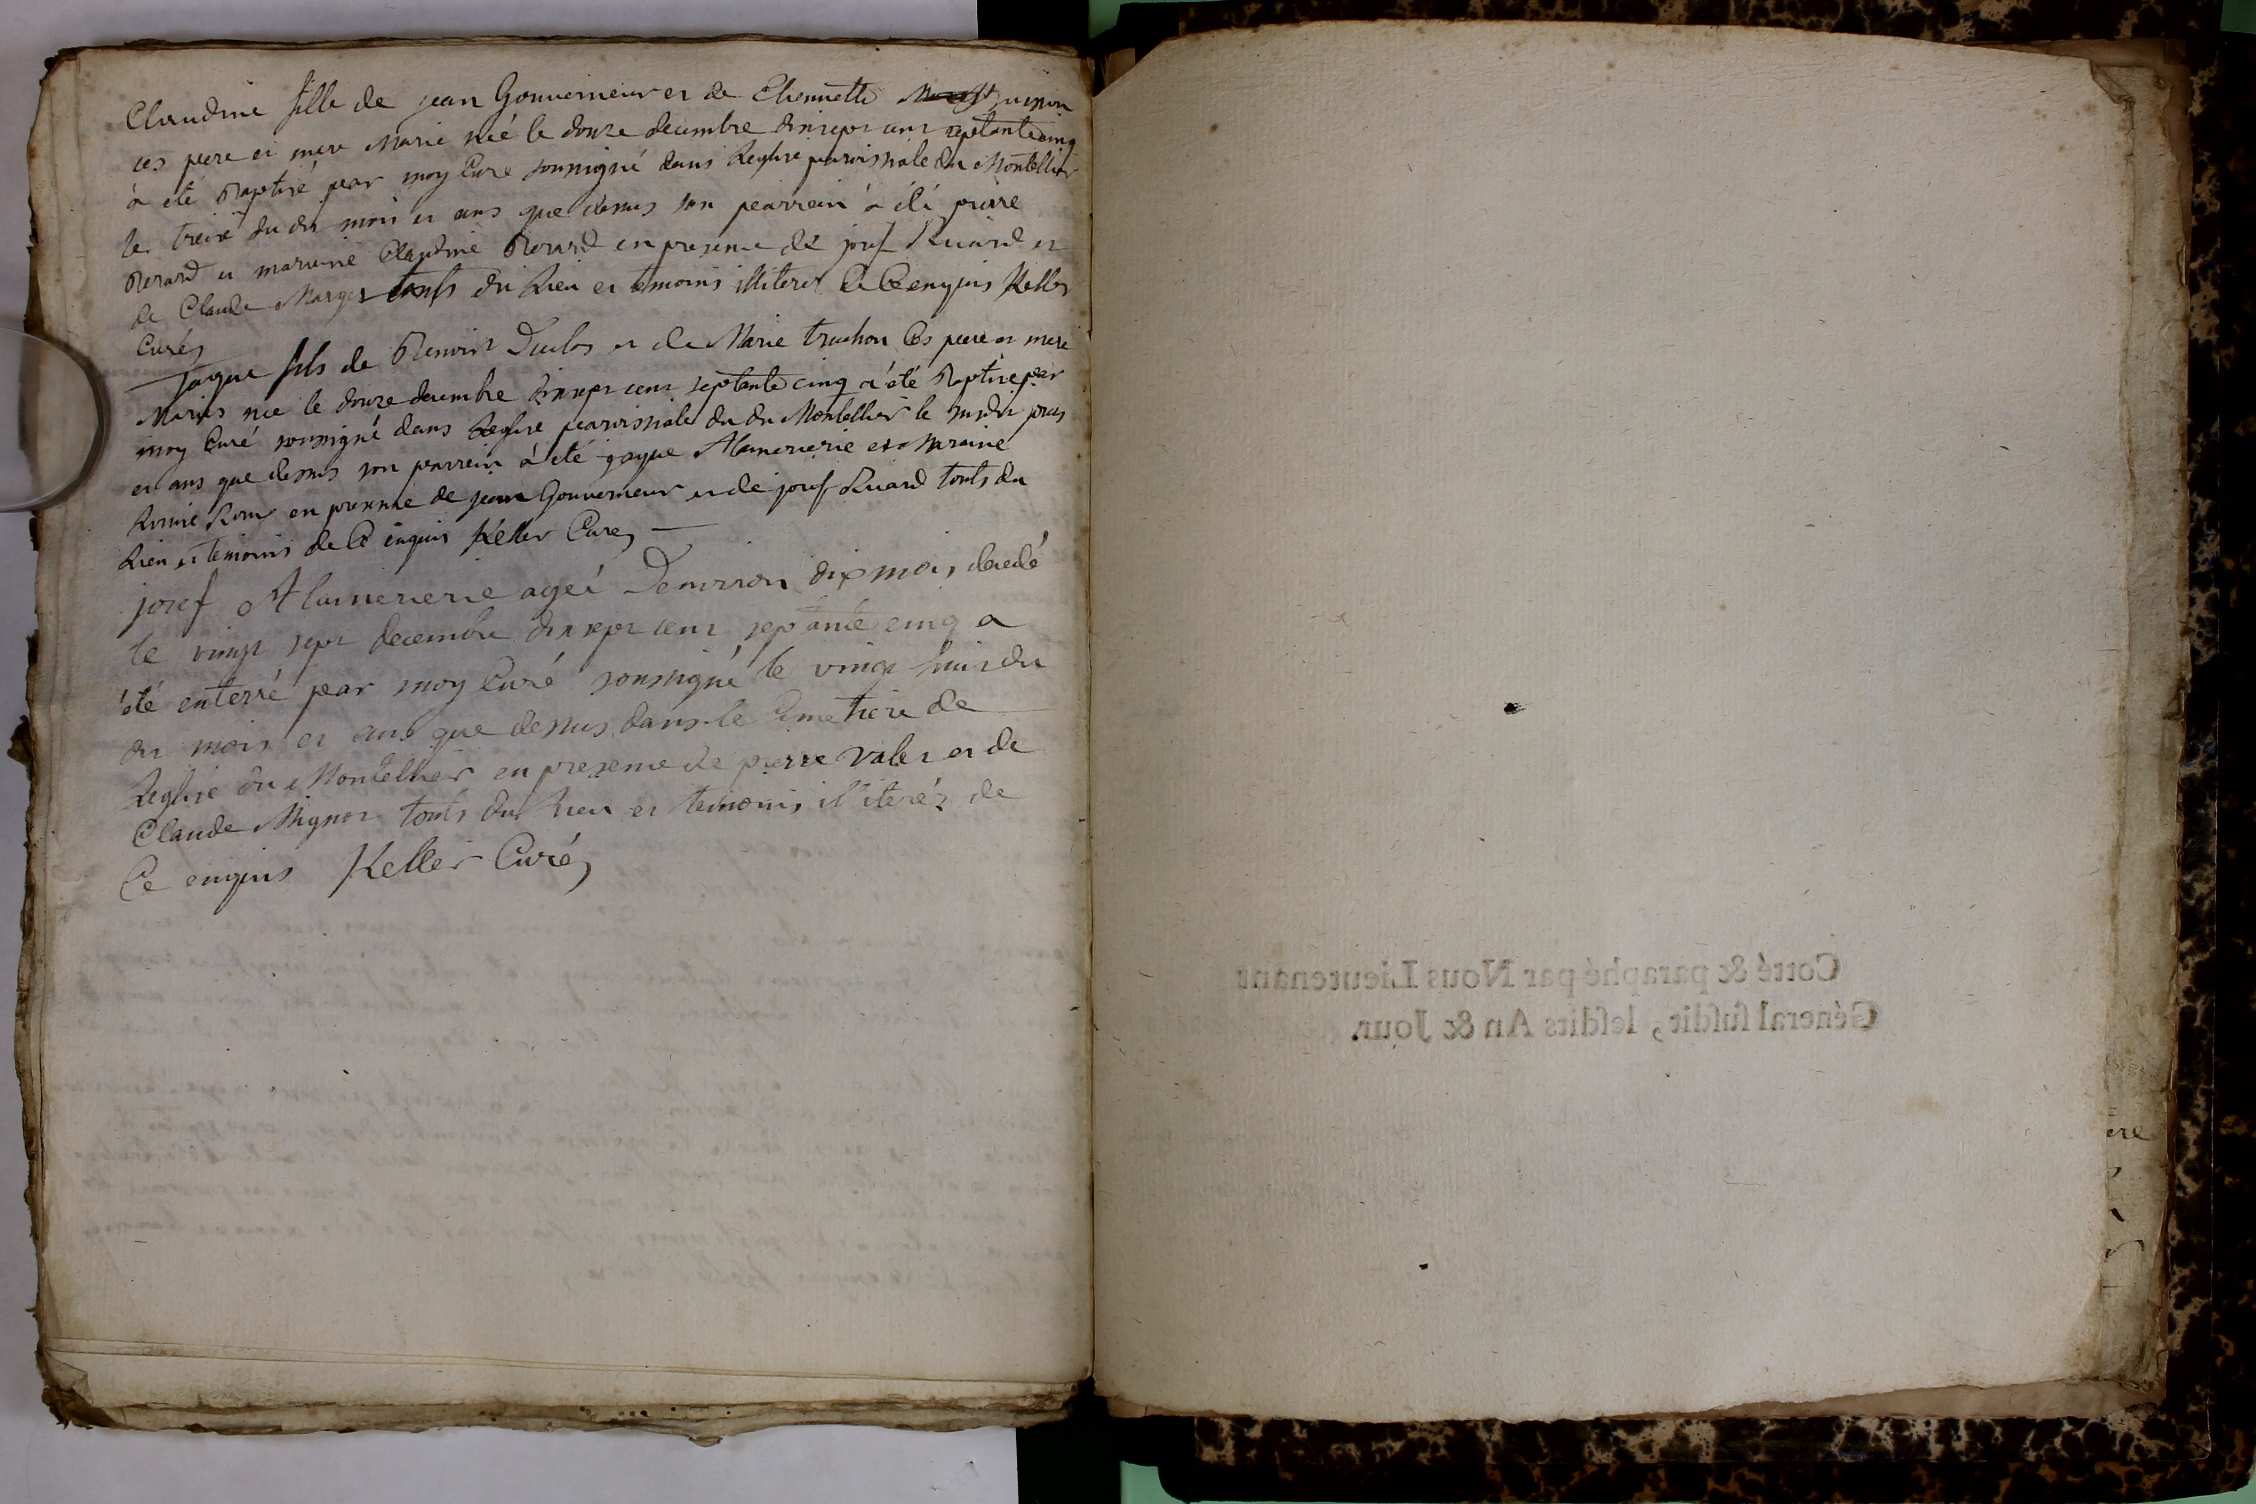 Claudine fille de jean Gouverneur et de Etiennette
ces pere et mere Marié neé le douze decembre dixsept cent septante cinq
à eté Baptisé par moy Curé soussigné dans Leglise paroissiale du Montellier
le treize du dit mois et ans que dessus son parrain à été pierre
Berard et marreine Claudine Berard en presence de josef Ruard et
de Claude Marger touts du Lieu et temoins illiteres de Ce enquis Keller
Curé
Jaque fils de Benoist Duclos et de Marie truchon Ces pere et mere
Mariés née le douze decembre dixsept cent septante cinq a été Baptisé par
moy Curé soussigné dans Leglise paroissiale du dit Montellier le susdit jour
et ans que dessus son parrein à été jaque Alamercerie et Mareine
en presence de jean Gouverneur et de josef Ruard touts du
Lieu et temoins de Ce enquis Keller Curé
josef Alamercerie ageé Denviron dix mois decedé
le vingt sept decembre dixsept cent septante cinq a
été enterré par moy Curé soussigné le vingt huit du
dit mois et ans que dessus dans le Cimetiere de
Leglise du Montellier en presence de pierre Valet et de
Claude Mignot touts du Lieu et temoins illiteréz de
Ce enquis Keller Curé
Cotté & paraphé par Nous Lieutenant
Géneral susdit, lesdits An & Jour.